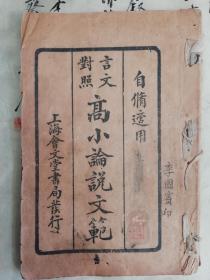 自修適用
言文
對照
高小論說文範
上海會文堂書局發行
李國賓印